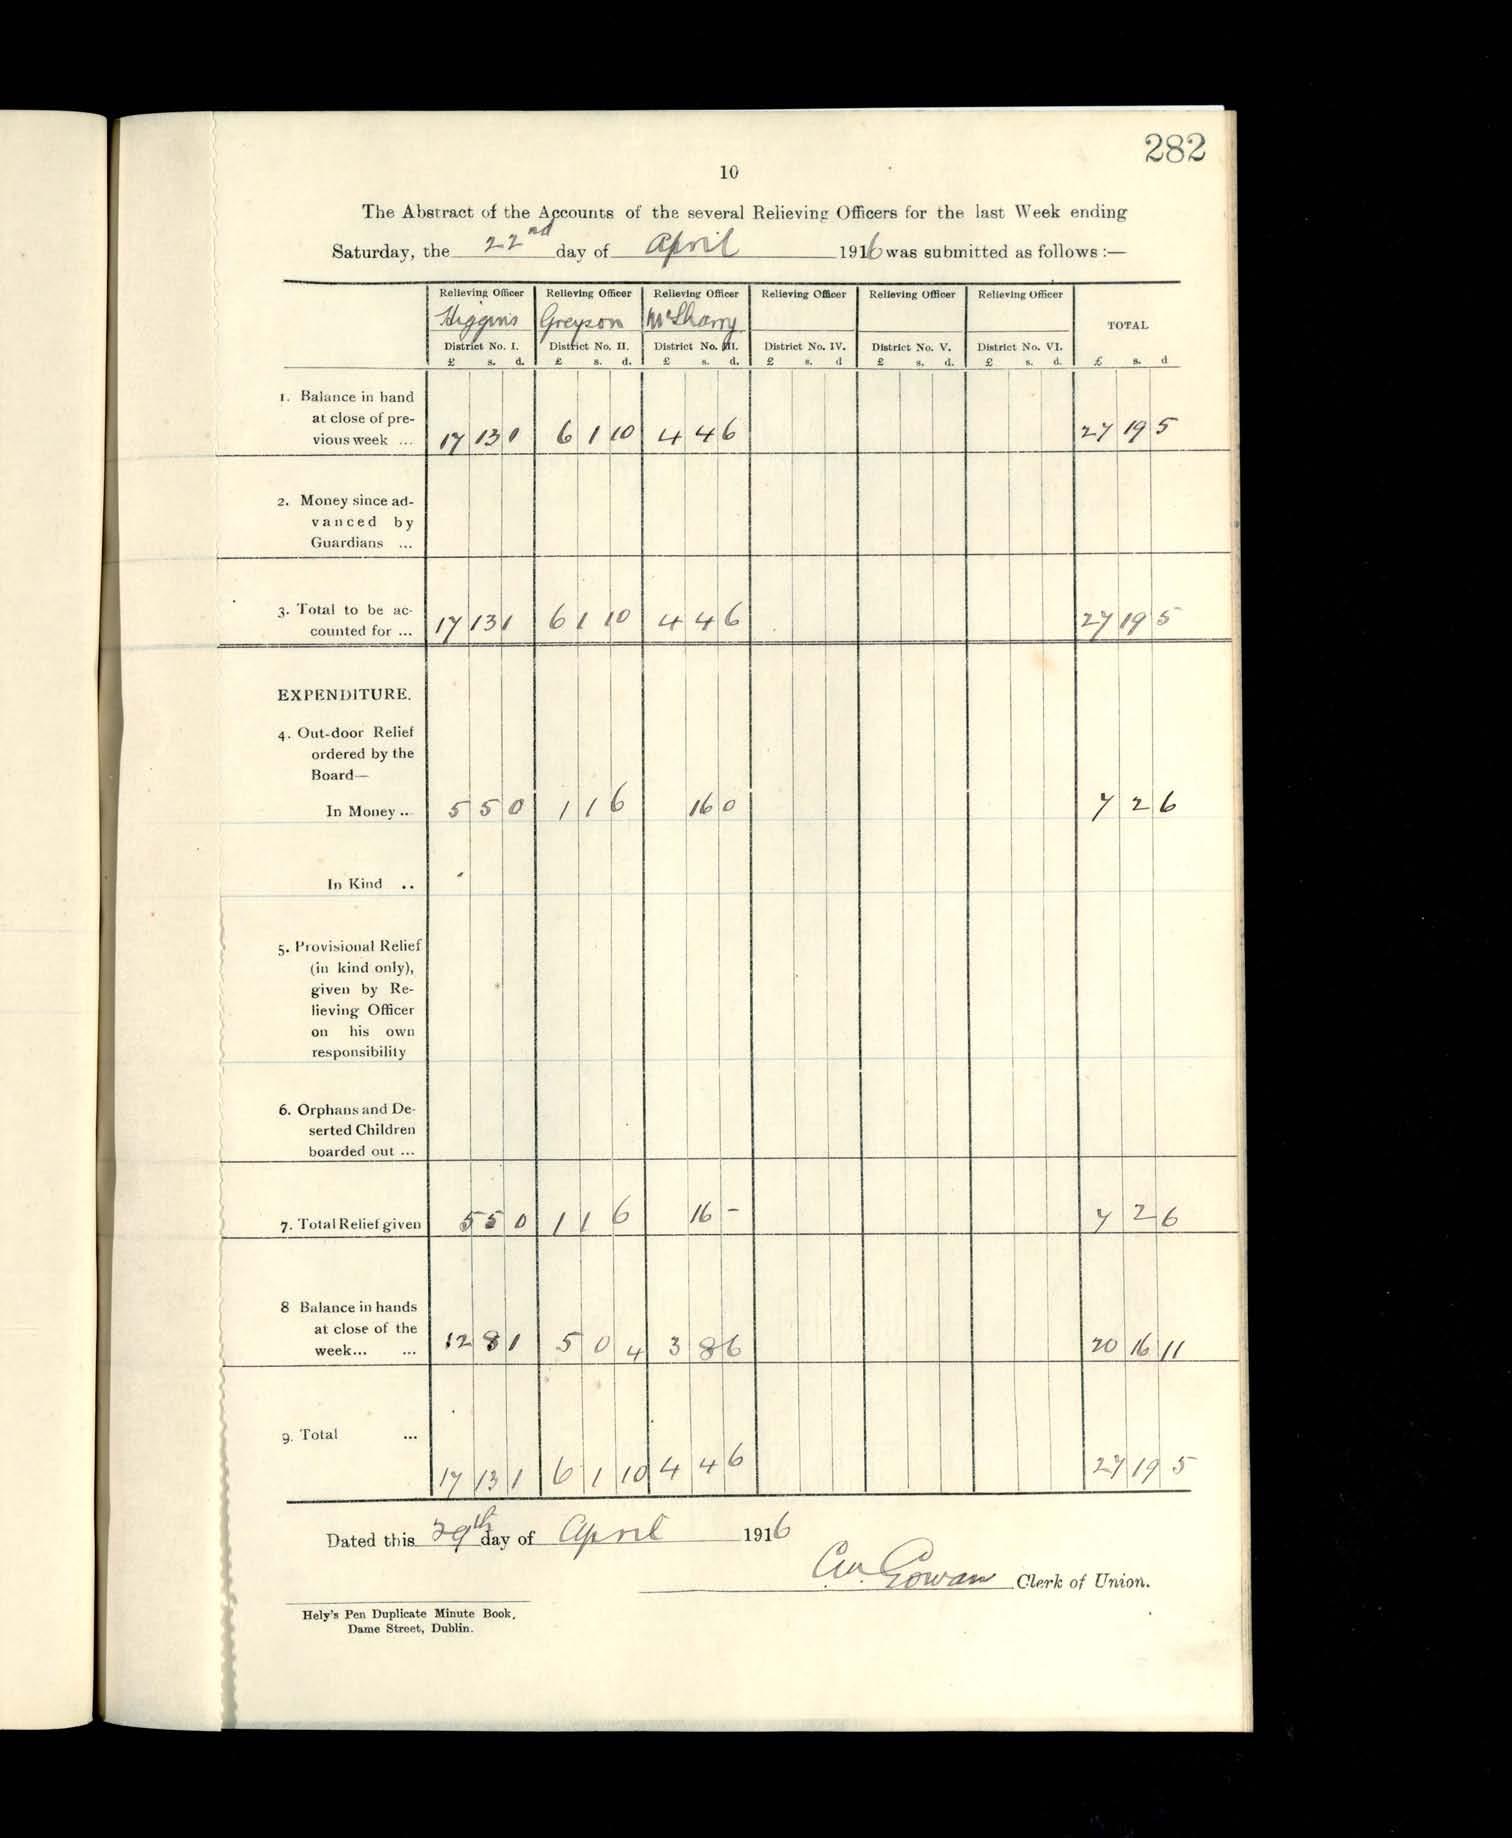 282
10
The Abstract of the Accounts of the several Relieving Officers for the last Week ending
Saturday, the 22nd day of April 1916 was submitted as follows :—
Relieving Officer Relieving Officer Relieving Officer Relieving Officer Relieving Officer Relieving Officer
Higgins Greyson McSharry TOTAL
District No. I. District No. II. District No. III. District No. IV. District No. V. District No. VI.
£ s. d. £ s. d. £ s. d. £ s. d £ s. d. £ s. d. £ s. d
1. Balance in hand
at close of pre-
vious week ... 17 13 1 6 1 10 4 4 6 27 19 5
2. Money since ad-
vanced by
Guardians ...
3. Total to be ac-
counted for ... 17 13 1 6 1 10 4 4 6 27 19 5
EXPENDITURE.
4. Out-door Relief
ordered by the
Board—
In Money .. 5 5 0 1 1 6 16 0 7 2 6
In Kind ..
5. Provisional Relief
(in kind only),
given by Re-
lieving Officer
on his own
responsibility
6. Orphans and De-
serted Children
boarded out ...
7. Total Relief given 5 5 0 1 1 6 16 - 7 2 6
8 Balance in hands
at close of the
week... ... 12 8 1 5 0 4 3 8 6 20 16 11
9. Total ...
17 13 1 6 1 10 4 4 6 27 19 5
Dated this 29th day of April 1916
Gowan Clerk of Union.
Hely's Pen Duplicate Minute Book,
Dame Street, Dublin.